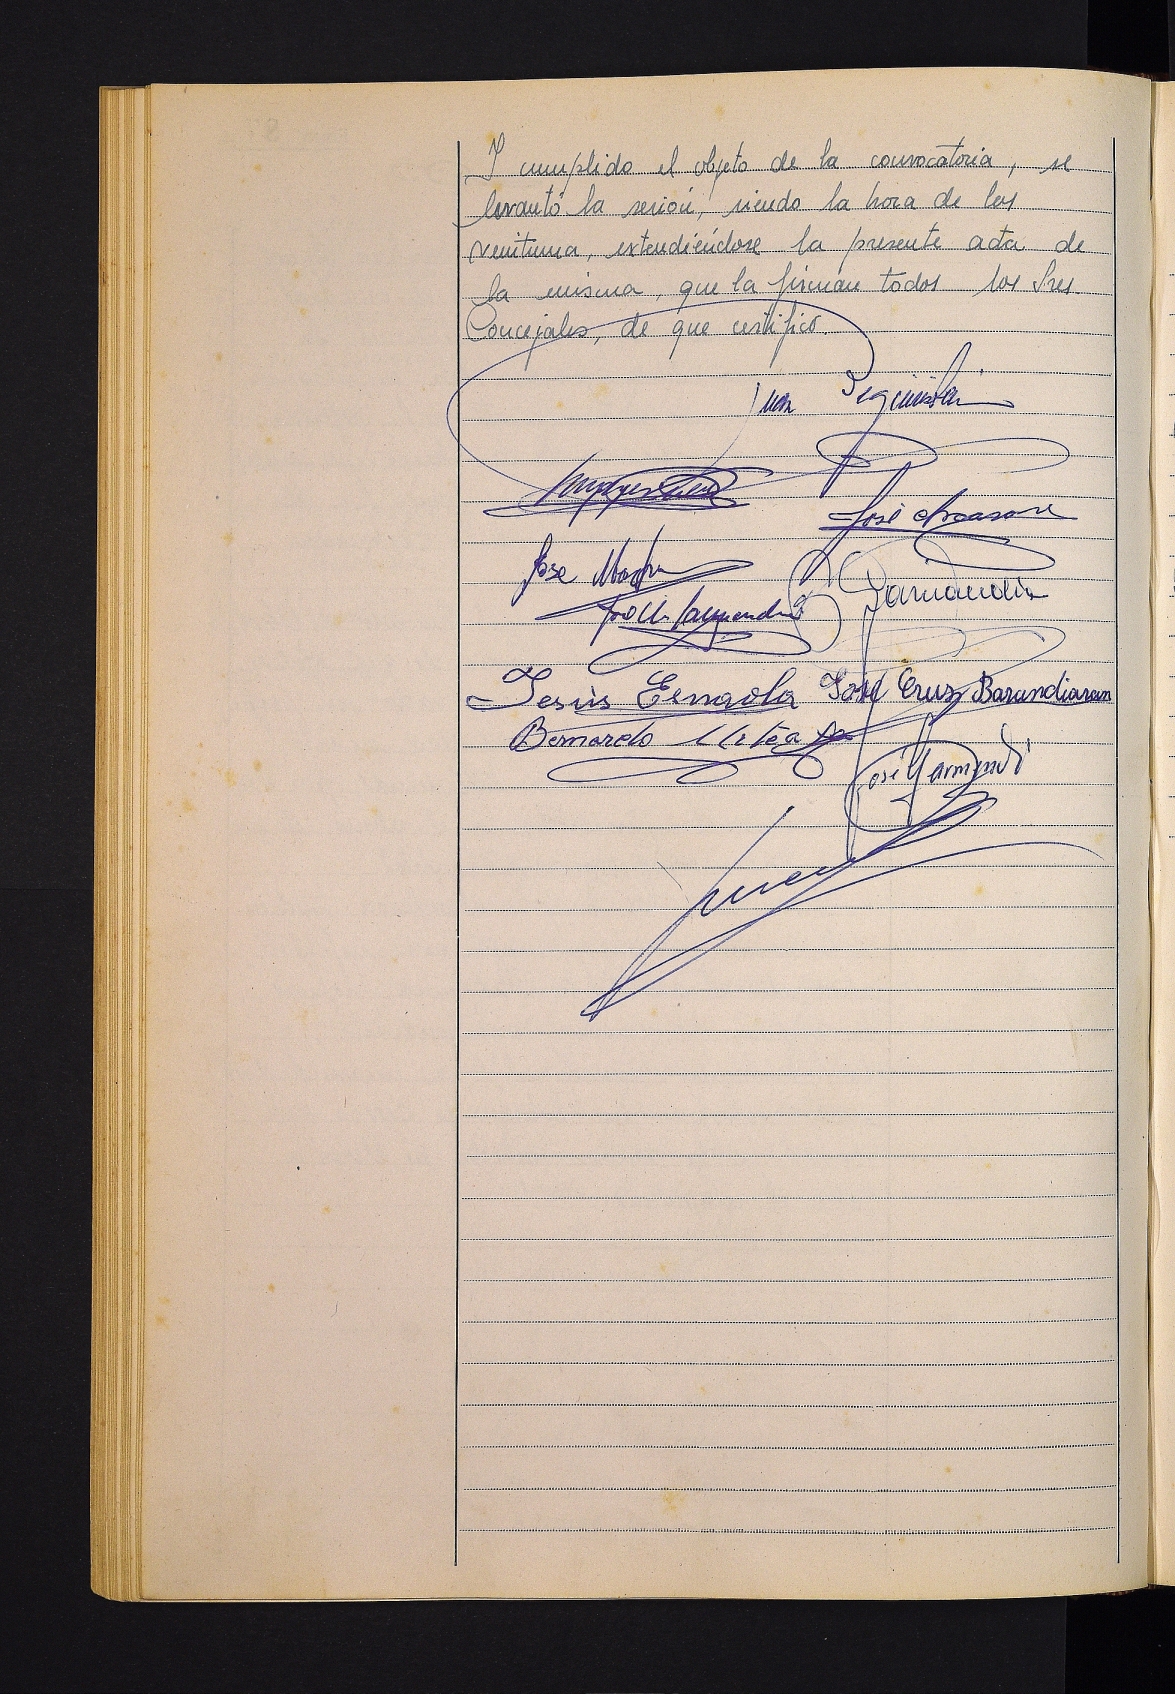 Y cumplido el objeto de la convocatoria, se
levantó la sesión, siendo la hora de las
veintiuna, extendiéndose la presente acta de
la misma, que la firman todos los Sres.
Concejales, de que certifico.
Juan
José
José
Jesús Esnaola José Cruz Barandiaran
Bernardo Urteaga
José Garmendi